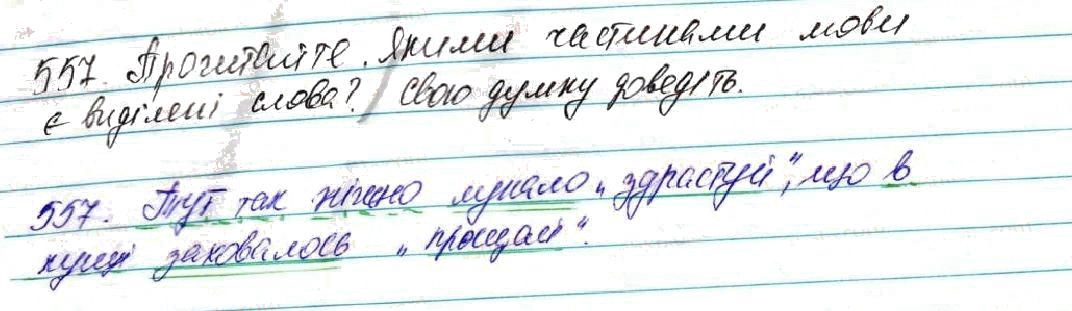 557. Прочитайте. Якими частинами мови
є виділені слова? Свою думку доведіть.
557. Тут так ніжно лунало „здрастуй“, що в
кущі заховалось „прощай“.